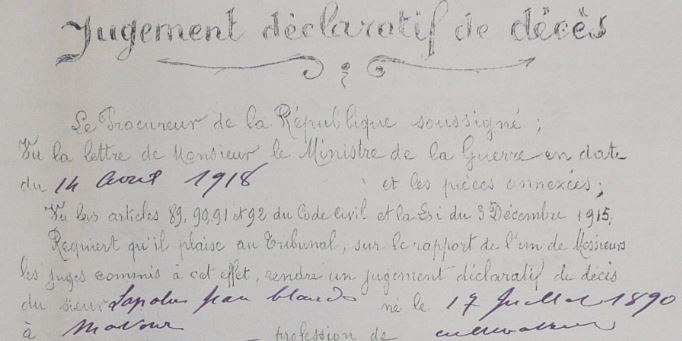 Jugement déclaratif de décès
Le Procureur de la République soussigné ;
Vu la lettre de Monsieur le Ministre de la Guerre en date
du 14 Avril 1918 et les pièces annexées ;
Vu les articles 89, 90, 91 et 92 du Code Civil et la Loi du 3 Décembre 1915,
Requiert qu'il plaise au Tribunal, sur le rapport de l'un de Messieurs
les Juges commis à cet effet, rendre un jugement déclaratif de décès
du sieur Jean né le 17 Juillet 1890
à profession de cultivateur